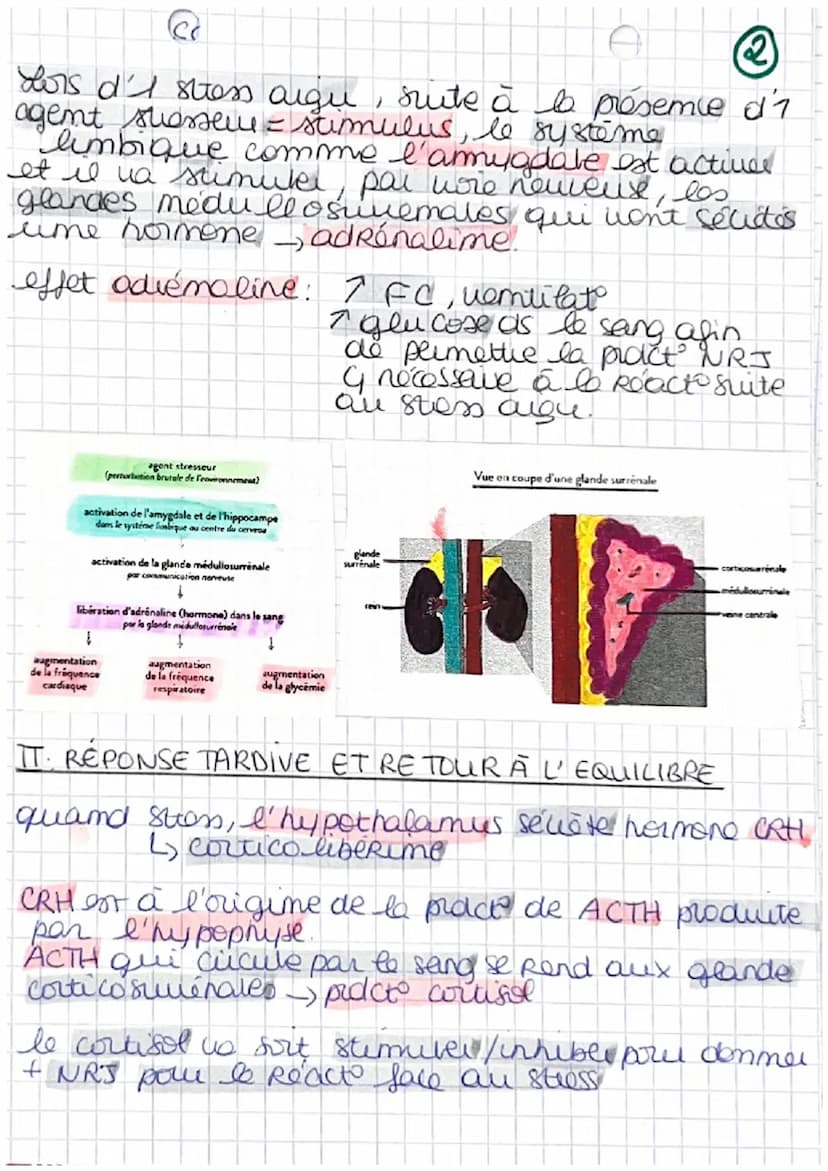 ②
Lors d'1 stress aigu, suite à la présence d'1
agent stresseur = stimulus, le système
limbique comme l'amygdale est activée
et il va stimuler, par voie nerveuse, les
glandes médullosurrénales qui vont sécrétés
une hormone → adrénaline.
effet adrénaline : ↗ FC, ventilat°
↗ glucose ds le sang afin
de permettre la prdct° NRJ
↳ nécessaire à la réact° suite
au stress aigu.
agent stresseur
(perturbation brutale de l'environnement)
activation de l'amygdale et de l'hippocampe
dans le système limbique au centre du cerveau
activation de la glande médullosurrénale
par communication nerveuse
↓
libération d'adrénaline (hormone) dans le sang
par la glande médullosurrénale
↓ ↓ ↓
augmentation
de la fréquence
cardiaque
augmentation
de la fréquence
respiratoire
augmentation
de la glycémie
Vue en coupe d'une glande surrénale
glande
surrénale
rein
corticosurrénale
médullosurrénale
veine centrale
II. RÉPONSE TARDIVE ET RETOUR À L'EQUILIBRE
quand stress, l'hypothalamus sécrète hormone CRH
↳ cortico libérine
CRH est à l'origine de la prdct° de ACTH produite
par l'hypophyse.
ACTH qui circule par le sang se rend aux glande
corticosurrénales → prdct° cortisol
le cortisol va soit stimuler/inhiber pour donner
+ NRJ pour la réact° face au stress